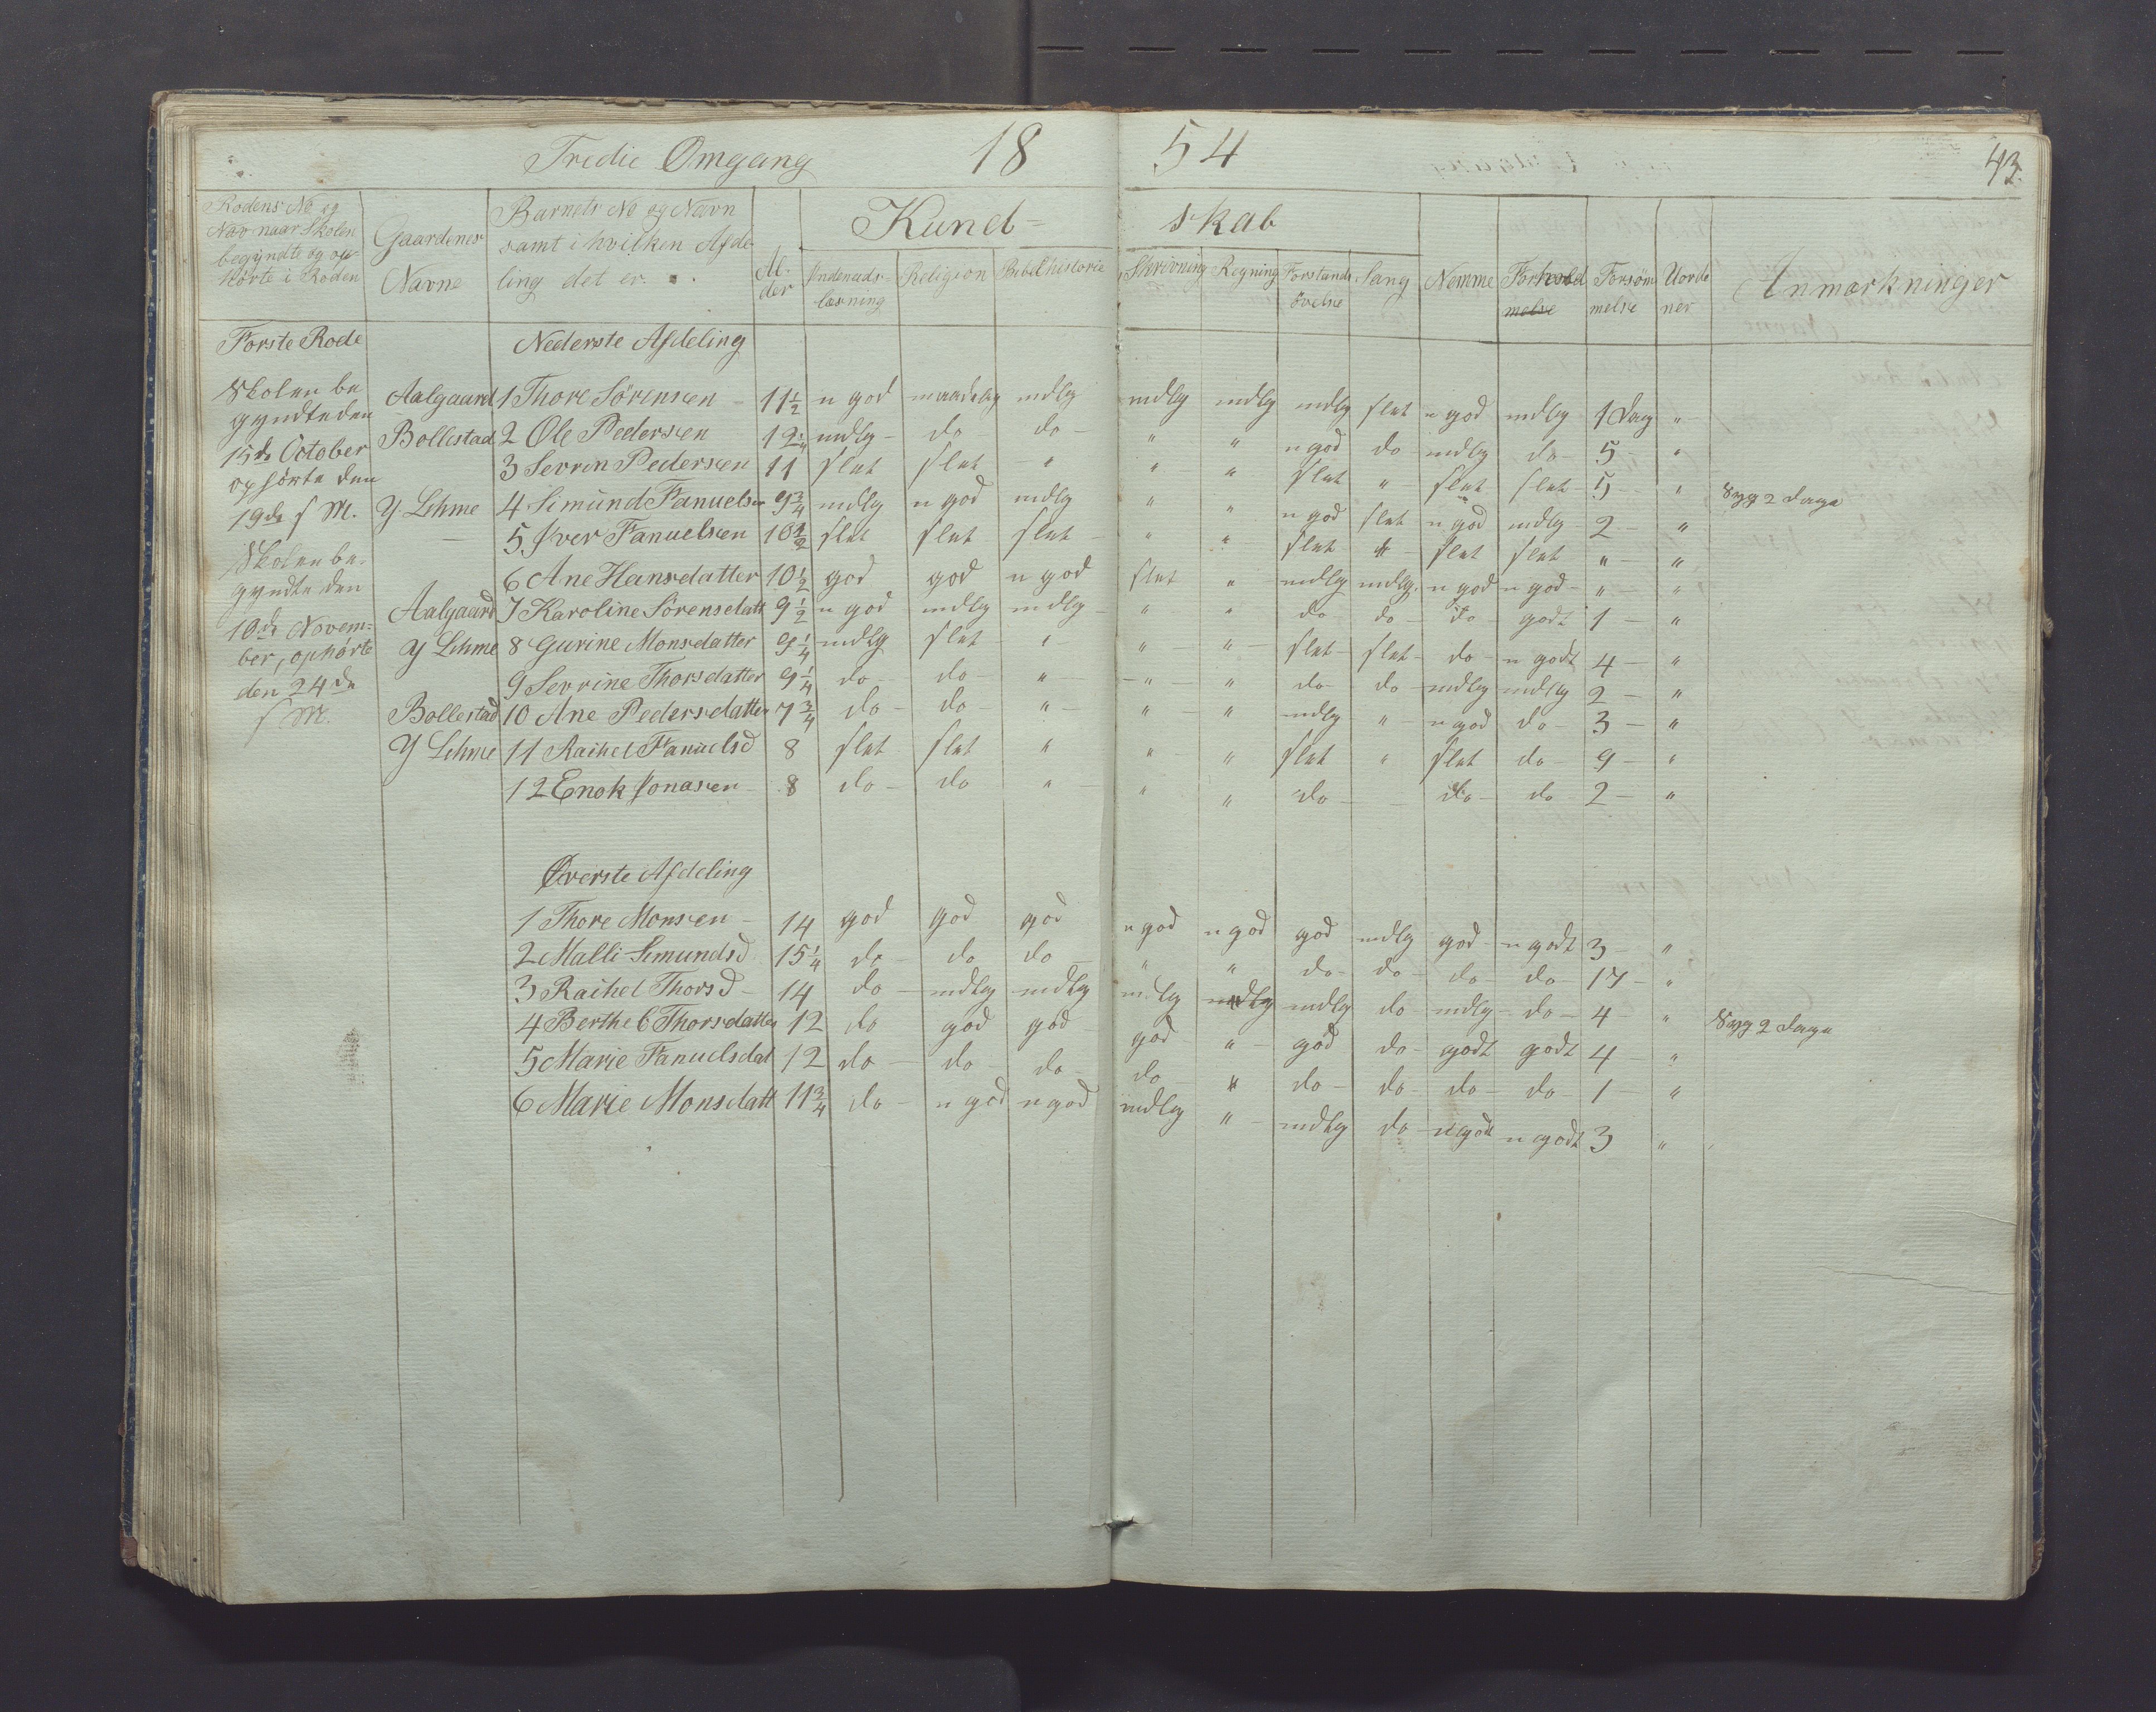 Tredie Omgang 18 54 43.
Rodens No og
Navn naar Skolen
begyndte og op-
hörte i Roden
Gaardenes
Navne
Barnets No og Navn
samt i hvilken Afde
ling det er.
Al-
der
Kund- skab
Indenads-
læsning
Religion
Bibelhistorie
Skrivning
Regning
Forstands
övelse
Sang
Nemme
Forhold
melse
Forsöm
melse
Uorde
ner
Anmærkninger
Forste Rode Nederste Afdeling
Skolen be
gyndte den
15de October
ophörte den
19de s M.
Skolen be-
gyndte den
10de Novem-
ber, ophörte
den 24de
s M.
Aalgaard 1 Thore Sörensen 11 1/2 n god maadelig mdlg mdlg mdlg mdlg slet n god mdlg 1 Dag "
Bollestad 2 Ole Pedersen 12 1/4 mdlg do do " " n god do mdlg do 5 "
3 Sevrin Pedersen 11 slet slet " " " slet " slet slet 5 " Syg 2 Dage
Y Lihme 4 Simund Fanuelsen 9 3/4 mdlg n god mdlg " " n god slet n god mdlg 2 "
— 5 Iver Fanuelsen 10 1/2 slet slet slet " " slet " slet slet " "
6 Ane Hansdatter 10 1/2 god god n god slet " mdlg mdlg n god n god " "
Aalgaard 7 Karoline Sörensdatt 9 1/2 n god mdlg mdlg " " do do do godt 1 "
Y Lihme 8 Gurine Monsdatter 9 1/4 mdlg slet " " " slet slet do n godt 4 "
9 Sevrine Thorsdatter 9 1/4 do do " " " do do mdlg mdlg 2 "
Bollestad 10 Ane Pedersdatter 7 3/4 do do " " " mdlg " n god do 3 "
Y Lihme 11 Raihel Fanuelsd 8 slet slet " " " slet " slet do 9 "
12 Enok Jonasen 8 do do " " " do — do do 2 "
Øverste Afdeling
1 Thore Monsen 14 god god god n god n god god mdlg god n godt 3 "
2 Malli Simundsd 15 1/4 do do do " " do do do do 17 "
3 Raihel Thorsd 14 do mdlg mdlg mdlg mdlg mdlg do mdlg do 4 " Syg 2 Dage
4 Berthe C Thorsdatter 12 do god god god " god do godt godt 4 "
5 Marie Fanuelsdat 12 do do do do " do do do do 1 "
6 Marie Monsdatt 11 3/4 do n god n god mdlg " mdlg do n god n godt 3 "